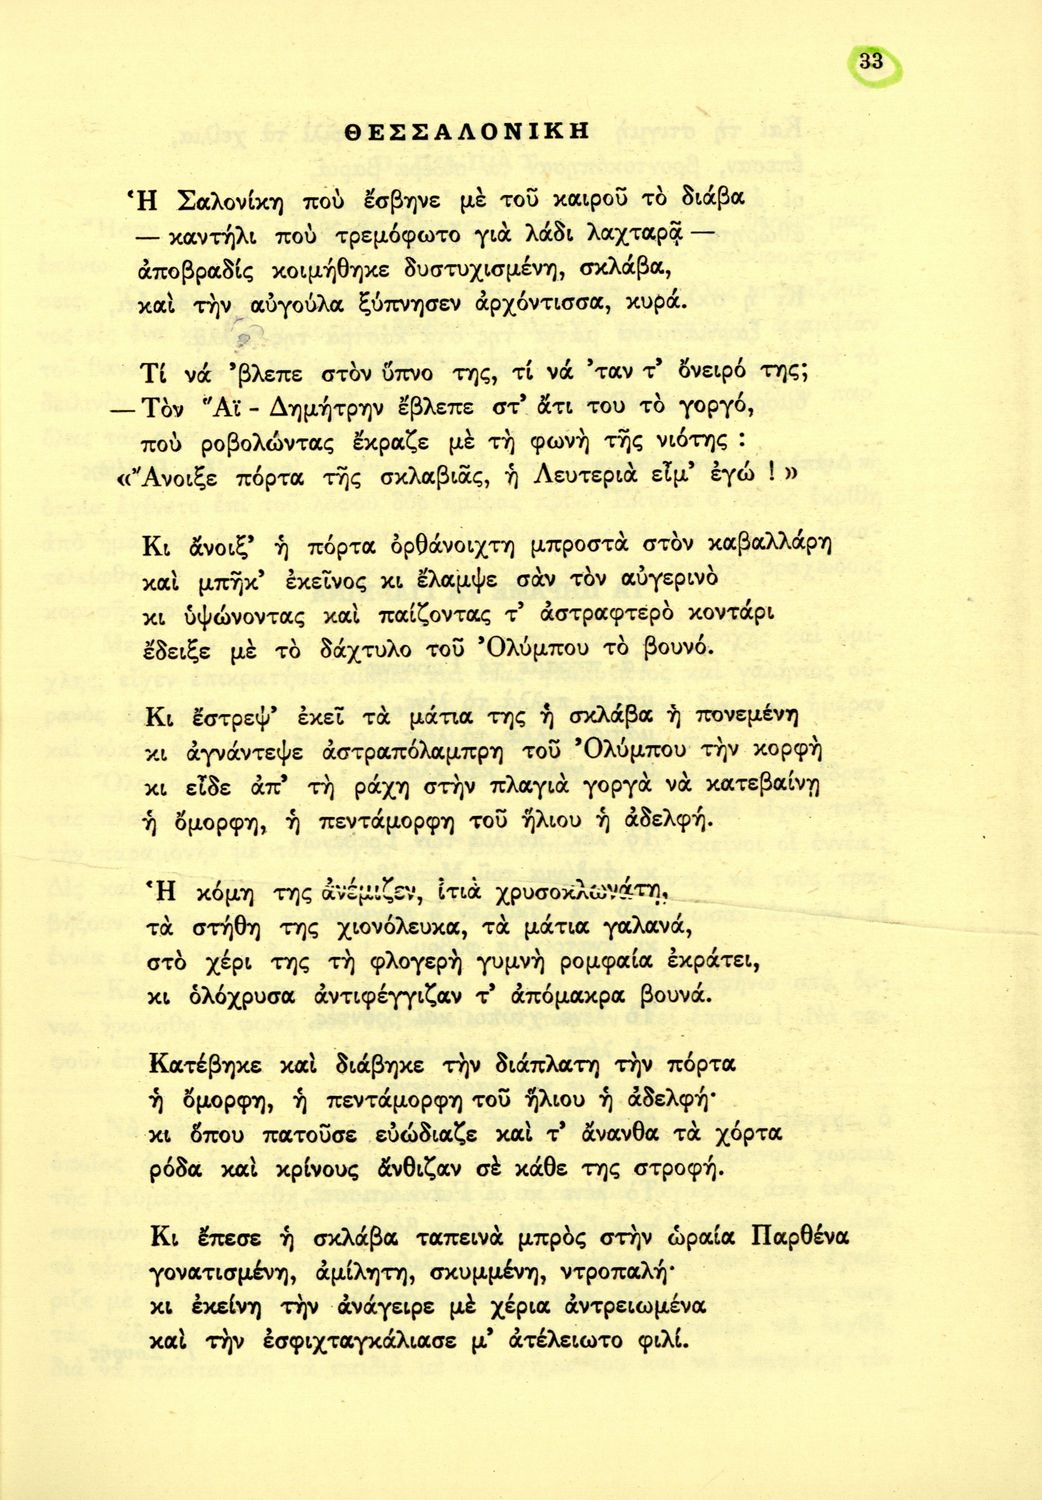 33
ΘΕΣΣΑΛΟΝΙΚΗ
Ἡ Σαλονίκη ποὺ ἔσβηνε μὲ τοῦ καιροῦ τὸ διάβα
— καντήλι ποὺ τρεμόφωτο γιὰ λάδι λαχταρᾷ —
ἀποβραδίς κοιμήθηκε δυστυχισμένη, σκλάβα,
καὶ τὴν αὐγούλα ξύπνησεν ἀρχόντισσα, κυρά.
Τί νά 'βλεπε στὸν ὕπνο της, τί νά 'ταν τ' ὄνειρό της;
— Τὸν Ἅϊ - Δημήτρην ἔβλεπε στ' ἄτι του τὸ γοργό,
ποὺ ροβολώντας ἔκραζε μὲ τὴ φωνὴ τῆς νιότης :
«Ἄνοιξε πόρτα τῆς σκλαβιᾶς, ἡ Λευτεριὰ εἶμ' ἐγώ ! »
Κι ἄνοιξ' ἡ πόρτα ὀρθάνοιχτη μπροστὰ στὸν καβαλλάρη
καὶ μπῆκ' ἐκεῖνος κι ἔλαμψε σὰν τὸν αὐγερινὸ
κι ὑψώνοντας καὶ παίζοντας τ' ἀστραφτερὸ κοντάρι
ἔδειξε μὲ τὸ δάχτυλο τοῦ Ὀλύμπου τὸ βουνό.
Κι ἔστρεψ' ἐκεῖ τὰ μάτια της ἡ σκλάβα ἡ πονεμένη
κι ἀγνάντεψε ἀστραπόλαμπρη τοῦ Ὀλύμπου τὴν κορφὴ
κι εἶδε ἀπ' τὴ ράχη στὴν πλαγιὰ γοργὰ νὰ κατεβαίνῃ
ἡ ὄμορφη, ἡ πεντάμορφη τοῦ ἥλιου ἡ ἀδελφή.
Ἡ κόμη της ἀνέμιζεν, ἰτιὰ χρυσοκλωνάτη,
τὰ στήθη της χιονόλευκα, τὰ μάτια γαλανά,
στὸ χέρι της τὴ φλογερὴ γυμνὴ ρομφαία ἐκράτει,
κι ὁλόχρυσα ἀντιφέγγιζαν τ' ἀπόμακρα βουνά.
Κατέβηκε καὶ διάβηκε τὴν διάπλατη τὴν πόρτα
ἡ ὄμορφη, ἡ πεντάμορφη τοῦ ἥλιου ἡ ἀδελφή·
κι ὅπου πατοῦσε εὐώδιαζε καὶ τ' ἄνανθα τὰ χόρτα
ρόδα καὶ κρίνους ἄνθιζαν σὲ κάθε της στροφή.
Κι ἔπεσε ἡ σκλάβα ταπεινὰ μπρὸς στὴν ὡραία Παρθένα
γονατισμένη, ἀμίλητη, σκυμμένη, ντροπαλή·
κι ἐκείνη τὴν ἀνάγειρε μὲ χέρια ἀντρειωμένα
καὶ τὴν ἐσφιχταγκάλιασε μ' ἀτέλειωτο φιλί.